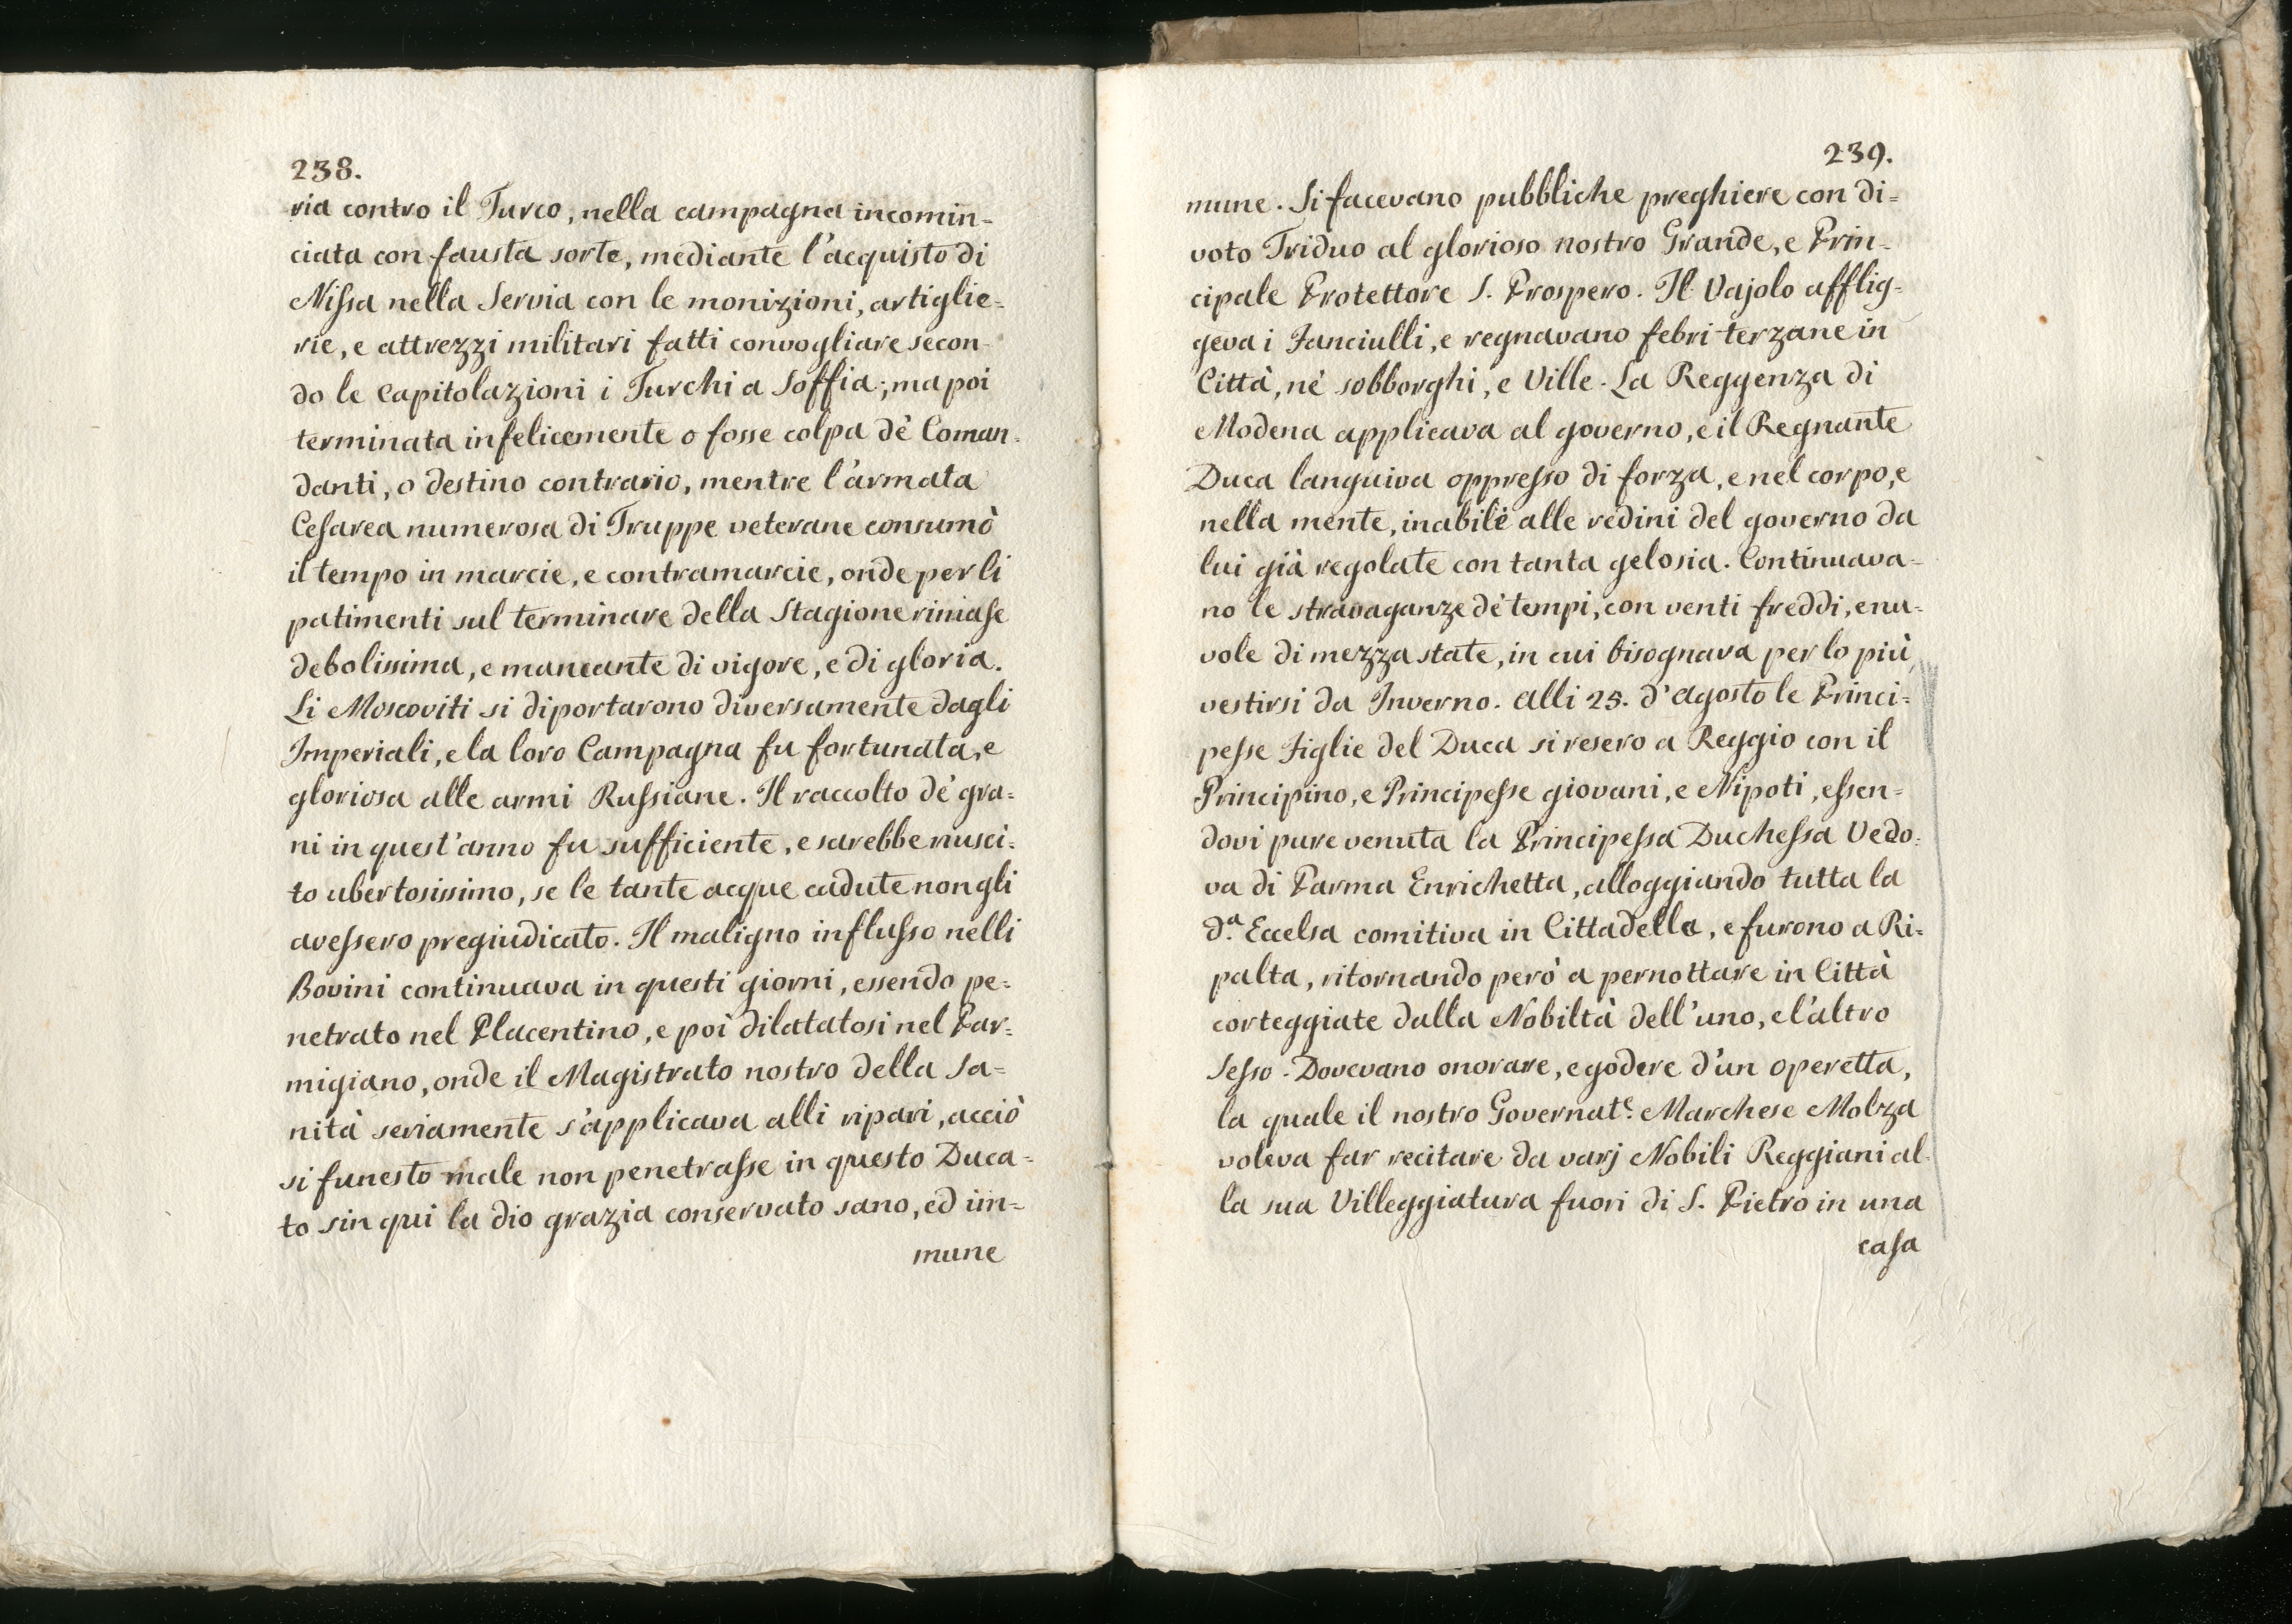 238.
ria contro il Turco, nella campagna incomin-
ciata con fausta sorte, mediante l'acquisto di
Nissa nella Servia con le monizioni, artiglie=
rie, e attrezzi militari fatti convogliare secon-
do le Capitolazioni i Turchi a Soffia; ma poi
terminata infelicemente o fosse colpa dè Coman=
danti, o destino contrario, mentre l'armata
Cesarea numerosa di Truppe veterane consumò
il tempo in marcie, e contramarcie, onde per li
patimenti sul terminare della Stagione rimase
debolissima, e mancante di vigore, e di gloria.
Li Moscoviti si diportarono diversamente dagli
Imperiali, e la loro Campagna fu fortunata, e
gloriosa alle armi Russiane. Il raccolto dè gra=
ni in quest'anno fu sufficiente, e sarebbe riusci=
to ubertosissimo, se le tante acque cadute non gli
avessero pregiudicato. Il maligno influsso nelli
Bovini continuava in questi giorni, essendo pe=
netrato nel Placentino, e poi dilatatosi nel Par=
migiano, onde il Magistrato nostro della Sa=
nità seriamente s'applicava alli ripari, acciò
si funesto male non penetrasse in questo Duca=
to sin qui la dio grazia conservato sano, ed im=
mune
239.
mune. Si facevano pubbliche preghiere con di=
voto Triduo al glorioso nostro Grande, e Prin=
cipale Protettore S. Prospero. Il Vajolo afflig=
geva i Fanciulli, e regnavano febri terzane in
Città, nè sobborghi, e Ville. La Reggenza di
Modena applicava al governo, e il Regnante
Duca languiva oppresso di forza, e nel corpo, e
nella mente, inabile alle redini del governo da
lui già regolate con tanta gelosia. Continuava=
no le stravaganze dè tempi, con venti freddi, e nu=
vole di mezza state, in cui bisognava per lo più
vestirsi da Inverno. Alli 25. d'Agosto le Princi=
pesse Figlie del Duca si resero a Reggio con il
Principino, e Principesse giovani, e Nipoti, essen=
dovi pure venuta la Principessa Duchessa Vedo=
va di Parma Enrichetta, alloggiando tutta la
d.ª Eccelsa comitiva in Cittadella, e furono a Ri=
palta, ritornando però a pernottare in Città
corteggiate dalla Nobiltà dell'uno, e l'altro
Sesso. Dovevano onorare, e godere d'un operetta,
la quale il nostro Governat.e Marchese Molza
voleva far recitare da varj Nobili Reggiani al=
la sua Villeggiatura fuori di S. Pietro in una
casa